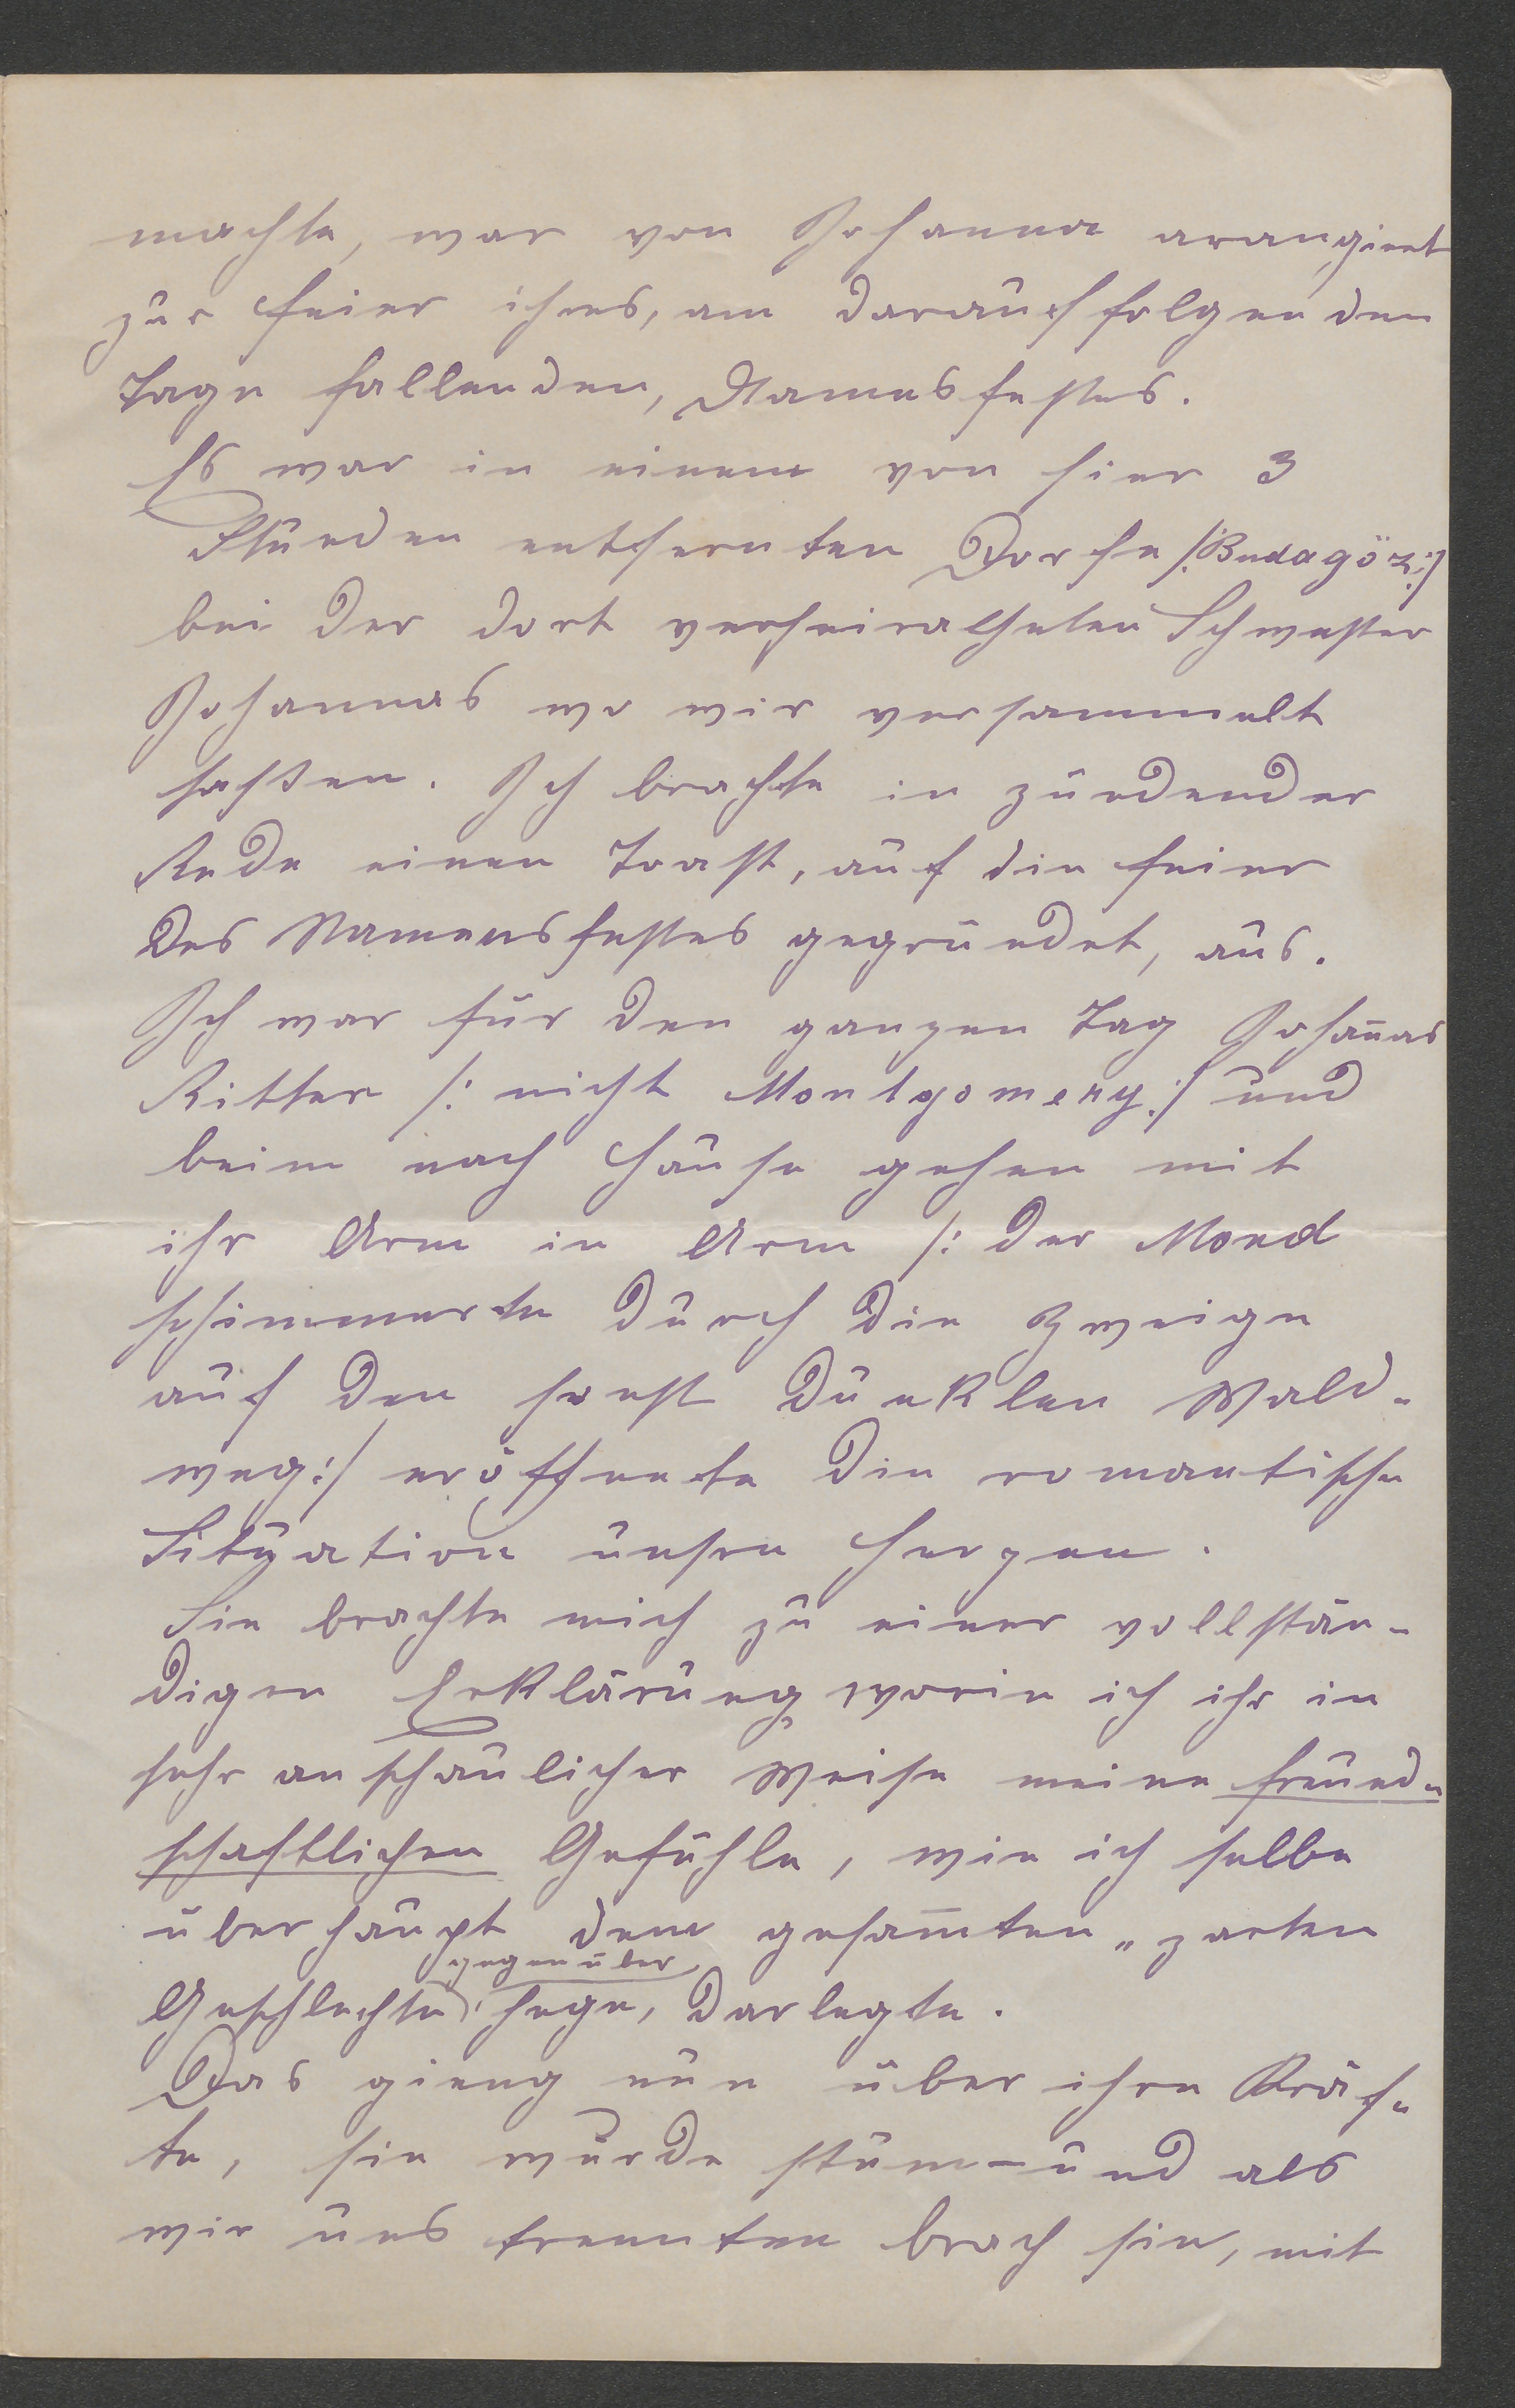 machte, war von Johanna arangiert
zur Feier ihres, am darauffolgenden
Tage fallenden, Namesfestes.
Es war in einem von hier 3
Stunden entfernten Dorfe /:Budagöz:/
bei der dort verheiratheten Schwester
Johannas wo wir versammelt
saßen. Ich brachte in zündender
Rede einen Toast, auf die Feier
des Namensfestes gegründet, aus.
Ich war für den ganzen Tag Joha&#772;nas
Ritter /: nicht Montgomery :/ und
beim nach Hause gehen mit
ihr Arm in Arm /: der Mond
schimmerte durch die Zweige
auf den sonst dunklen Wald-
weg :/ eröffnete die romantische
Situation unsre Herzen.
Sie brachte mich zu einer vollstän-
digen Erklärung, worin ich ihr in
sehr anschaulicher Weise meine freund-
schaftlichen Gefühle, wie ich selbe
überhaupt dem gesam̄ten „zarten
gegenüber
Geschlechte" hege, darlegte.
Das gieng nun über ihre Kräf-
te, sie wurde stumm und als
wir uns trennten brach sie, mit